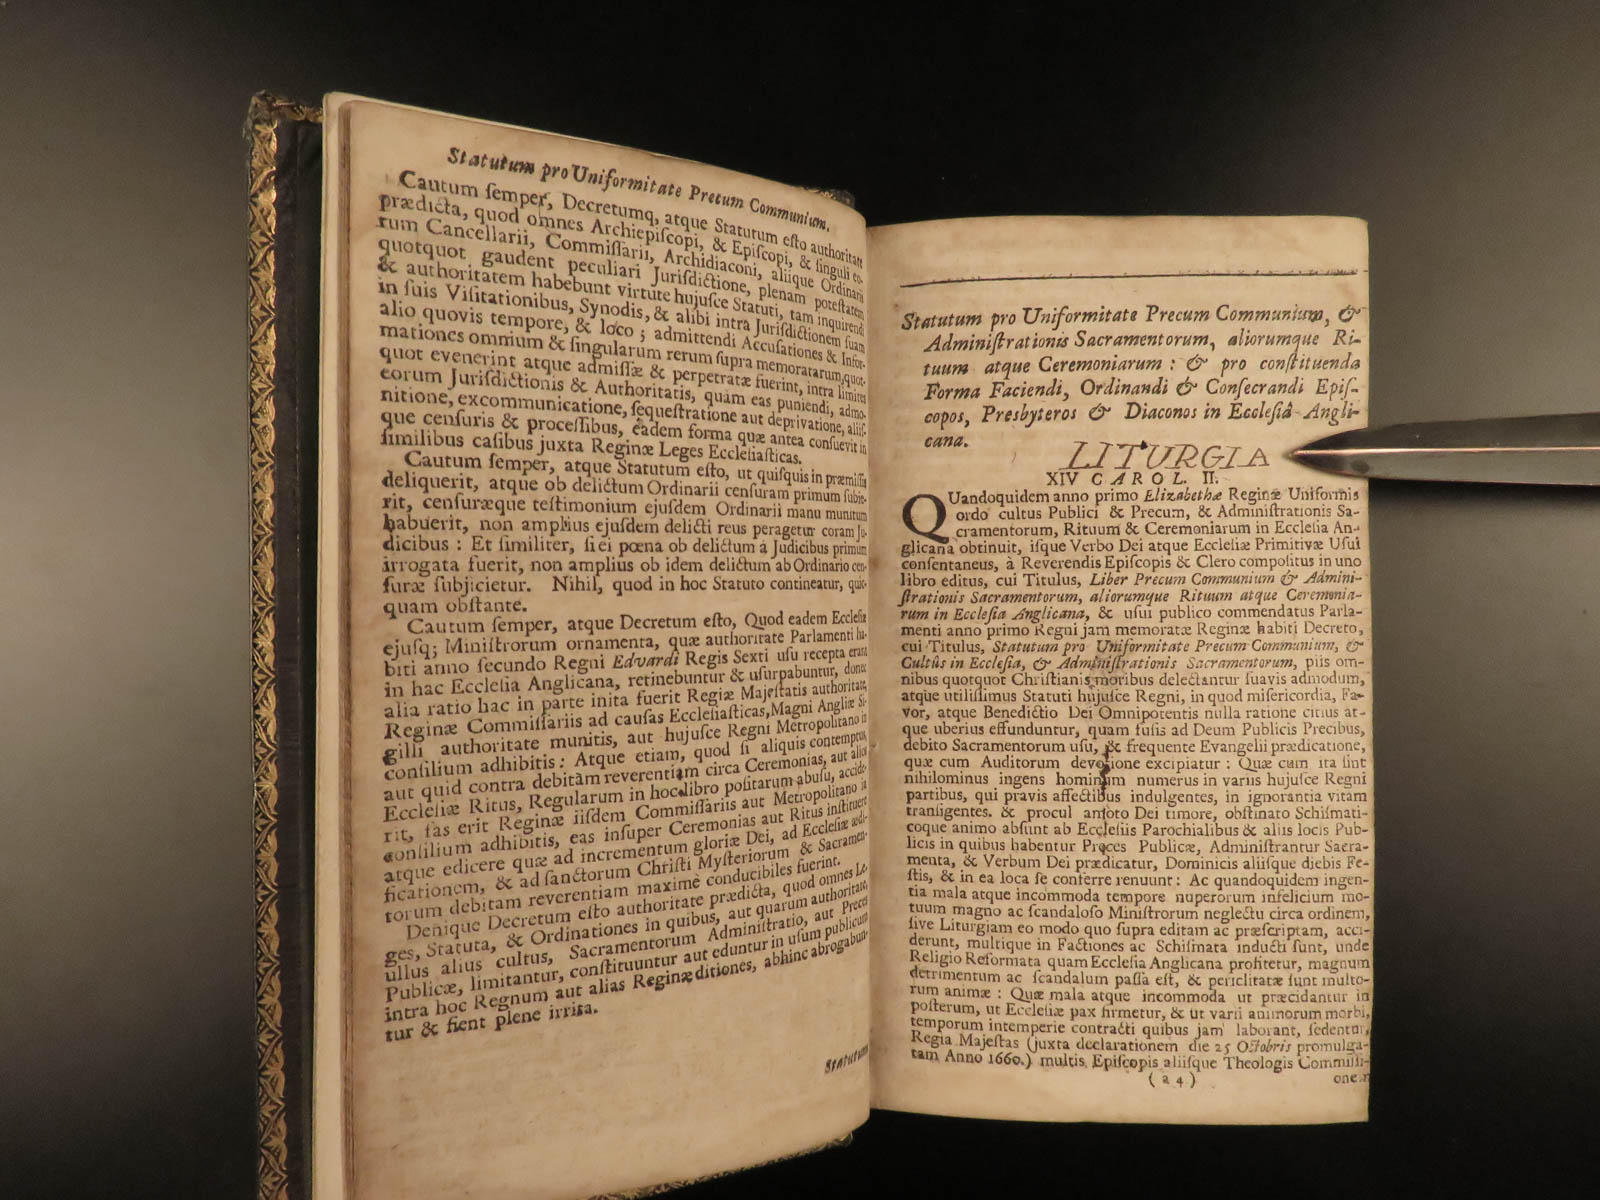 Statutum pro Uniformitate Precum Communium.
Cautum ſemper, Decretumq, atque Statutum eſto authoritate
prædicta, quod omnes Archiepiſcopi, & Epiſcopi, & ſinguli eo-
rum Cancellarii, Commiſſarii, Archidiaconi, aliique Ordinarii
quotquot gaudent peculiari Juriſdictione, plenam poteſtatem
& authoritatem habebunt virtute hujuſce Statuti, tam inquirendi
in ſuis Viſitationibus, Synodis, & alibi intra Juriſdictionem ſuam
alio quovis tempore, & loco; admittendi Accuſationes & Infor-
mationes omnium & ſingularum rerum ſupra memoratarum, quot-
quot evenerint atque admiſſæ & perpetratæ fuerint, intra limites
eorum Juriſdictionis & Authoritatis, quàm eas puniendi, admo-
nitione, excommunicatione, ſequeſtratione aut deprivatione, aliiſ-
que cenſuris & proceſſibus, eadem forma quæ antea conſuevit in
ſimilibus caſibus juxta Reginæ Leges Eccleſiaſticas.
Cautum ſemper, atque Statutum eſto, ut quiſquis in præmiſſis
deliquerit, atque ob delictum Ordinarii cenſuram primum ſubie-
rit, cenſuræque teſtimonium ejuſdem Ordinarii manu munitum
habuerit, non amplius ejuſdem delicti reus peragetur coram Ju-
dicibus : Et ſimiliter, ſi ei pœna ob delictum à Judicibus primum
irrogata fuerit, non amplius ob idem delictum ab Ordinario cen-
ſuræ ſubjicietur. Nihil, quod in hoc Statuto contineatur, quic-
quam obſtante.
Cautum ſemper, atque Decretum eſto, Quod eadem Eccleſiæ
ejuſq; Miniſtrorum ornamenta, quæ authoritate Parlamenti ha-
biti anno ſecundo Regni Edvardi Regis Sexti uſu recepta erant
in hac Eccleſia Anglicana, retinebuntur & uſurpabuntur, donec
alia ratio hac in parte inita fuerit Regiæ Majeſtatis authoritate,
Reginæ Commiſſariis ad cauſas Eccleſiaſticas, Magni Angliæ Si-
gilli authoritate munitis, aut hujuſce Regni Metropolitano in
conſilium adhibitis : Atque etiam, quod ſi aliquis contemptus,
aut quid contra debitam reverentiam circa Ceremonias, aut alios
Eccleſiæ Ritus, Regularum in hoc libro poſitarum abuſu, accide-
rit, fas erit Reginæ iiſdem Commiſſariis aut Metropolitano in
conſilium adhibitis, eas inſuper Ceremonias aut Ritus inſtituere
atque edicere quæ ad incrementum gloriæ Dei, ad Eccleſiæ ædi-
ficationem, & ad ſanctorum Chriſti Myſteriorum & Sacramen-
torum debitam reverentiam maximè conducibiles fuerint.
Denique Decretum eſto authoritate prædicta, quod omnes Le-
ges, Statuta, & Ordinationes in quibus, aut quarum authoritate,
ullus alius cultus, Sacramentorum Adminiſtratio, aut Preces
Publicæ, limitantur, conſtituuntur aut eduntur in uſum publicum
intra hoc Regnum aut alias Reginæ ditiones, abhinc abrogabun-
tur & fient plene irrita.
Statutum
Statutum pro Uniformitate Precum Communium, &
Adminiſtrationis Sacramentorum, aliorumque Ri-
tuum atque Ceremoniarum : & pro conſtituenda
Forma Faciendi, Ordinandi & Conſecrandi Epiſ-
copos, Presbyteros & Diaconos in Eccleſiâ Angli-
cana.
LITURGIA
XIV CAROL. II.
QUandoquidem anno primo Elizabethæ Reginæ Uniformis
ordo cultus Publici & Precum, & Adminiſtrationis Sa-
cramentorum, Rituum & Ceremoniarum in Eccleſia An-
glicana obtinuit, iſque Verbo Dei atque Eccleſiæ Primitivæ Uſui
conſentaneus, à Reverendis Epiſcopis & Clero compoſitus in uno
libro editus, cui Titulus, Liber Precum Communium & Admini-
ſtrationis Sacramentorum, aliorumque Rituum atque Ceremonia-
rum in Eccleſia Anglicana, & uſui publico commendatus Parla-
menti anno primo Regni jam memoratæ Reginæ habiti Decreto,
cui Titulus, Statutum pro Uniformitate Precum Communium, &
Cultûs in Eccleſia, & Adminiſtrationis Sacramentorum, piis om-
nibus quotquot Chriſtianis moribus delectantur ſuavis admodum,
atque utiliſſimus Statui hujuſce Regni, in quod miſericordia, Fa-
vor, atque Benedictio Dei Omnipotentis nulla ratione citius at-
que uberius effunduntur, quam fuſis ad Deum Publicis Precibus,
debito Sacramentorum uſu, & frequente Evangelii prædicatione,
quæ cum Auditorum devotione excipiatur : Quæ cum ita ſint
nihilominus ingens hominum numerus in variis hujuſce Regni
partibus, qui pravis affectibus indulgentes, in ignorantia vitam
tranſigentes. & procul amoto Dei timore, obſtinato Schiſmati-
coque animo abſunt ab Eccleſiis Parochialibus & aliis locis Pub-
licis in quibus habentur Preces Publicæ, Adminiſtrantur Sacra-
menta, & Verbum Dei prædicatur, Dominicis aliiſque diebis Fe-
ſtis, & in ea loca ſe conferre renuunt : Ac quandoquidem ingen-
tia mala atque incommoda tempore nuperorum infelicium mo-
tuum magno ac ſcandaloſo Miniſtrorum neglectu circa ordinem,
ſive Liturgiam eo modo quo ſupra editam ac præſcriptam, acci-
derunt, multique in Factiones ac Schiſmata inducti ſunt, unde
Religio Reformata quam Eccleſia Anglicana profitetur, magnum
detrimentum ac ſcandalum paſſa eſt, & periclitatæ ſunt multo-
rum animæ : Quæ mala atque incommoda ut præcidantur in
poſterum, ut Eccleſiæ pax firmetur, & ut varii animorum morbi,
temporum intemperie contracti quibus jam laborant, ſedentur,
Regia Majeſtas (juxta declarationem die 25 Octobris promulga-
tam Anno 1660.) multis Epiſcopis aliiſque Theologis Commiſſi-
(a 4) onem